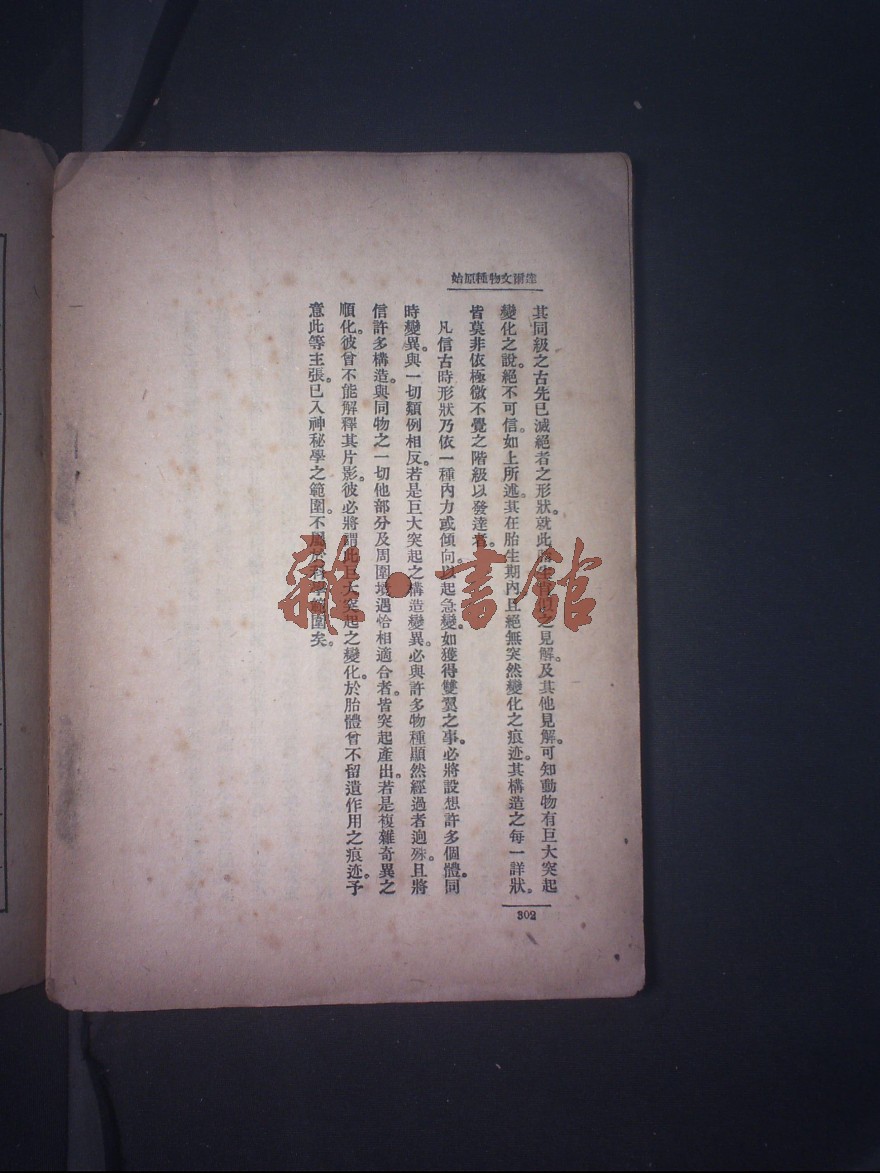 達爾文物種原始
其同級之古先已滅絕者之形狀。就此胎生之見解。及其他見解。可知動物有巨大突起
變化之說。絕不可信。如上所述。其在胎生期內且絕無突然變化之痕迹。其構造之每一詳狀。
皆莫非依極微不覺之階級以發達者。
凡信古時形狀乃依一種內力或傾向以起急變。如獲得雙翼之事。必將設想許多個體。同
時變異。與一切類例相反。若是巨大突起之構造變異。必與許多物種顯然經過者逈殊。且將
信許多構造。與同物之一切他部分及周圍境遇恰相適合者。皆突起產出。若是複雜奇異之
順化。彼曾不能解釋其片影。彼必將謂此巨大突起之變化。於胎體曾不留遺作用之痕迹。予
意此等主張。已入神秘學之範圍。不屬於科學範圍矣。
302
雜·書館